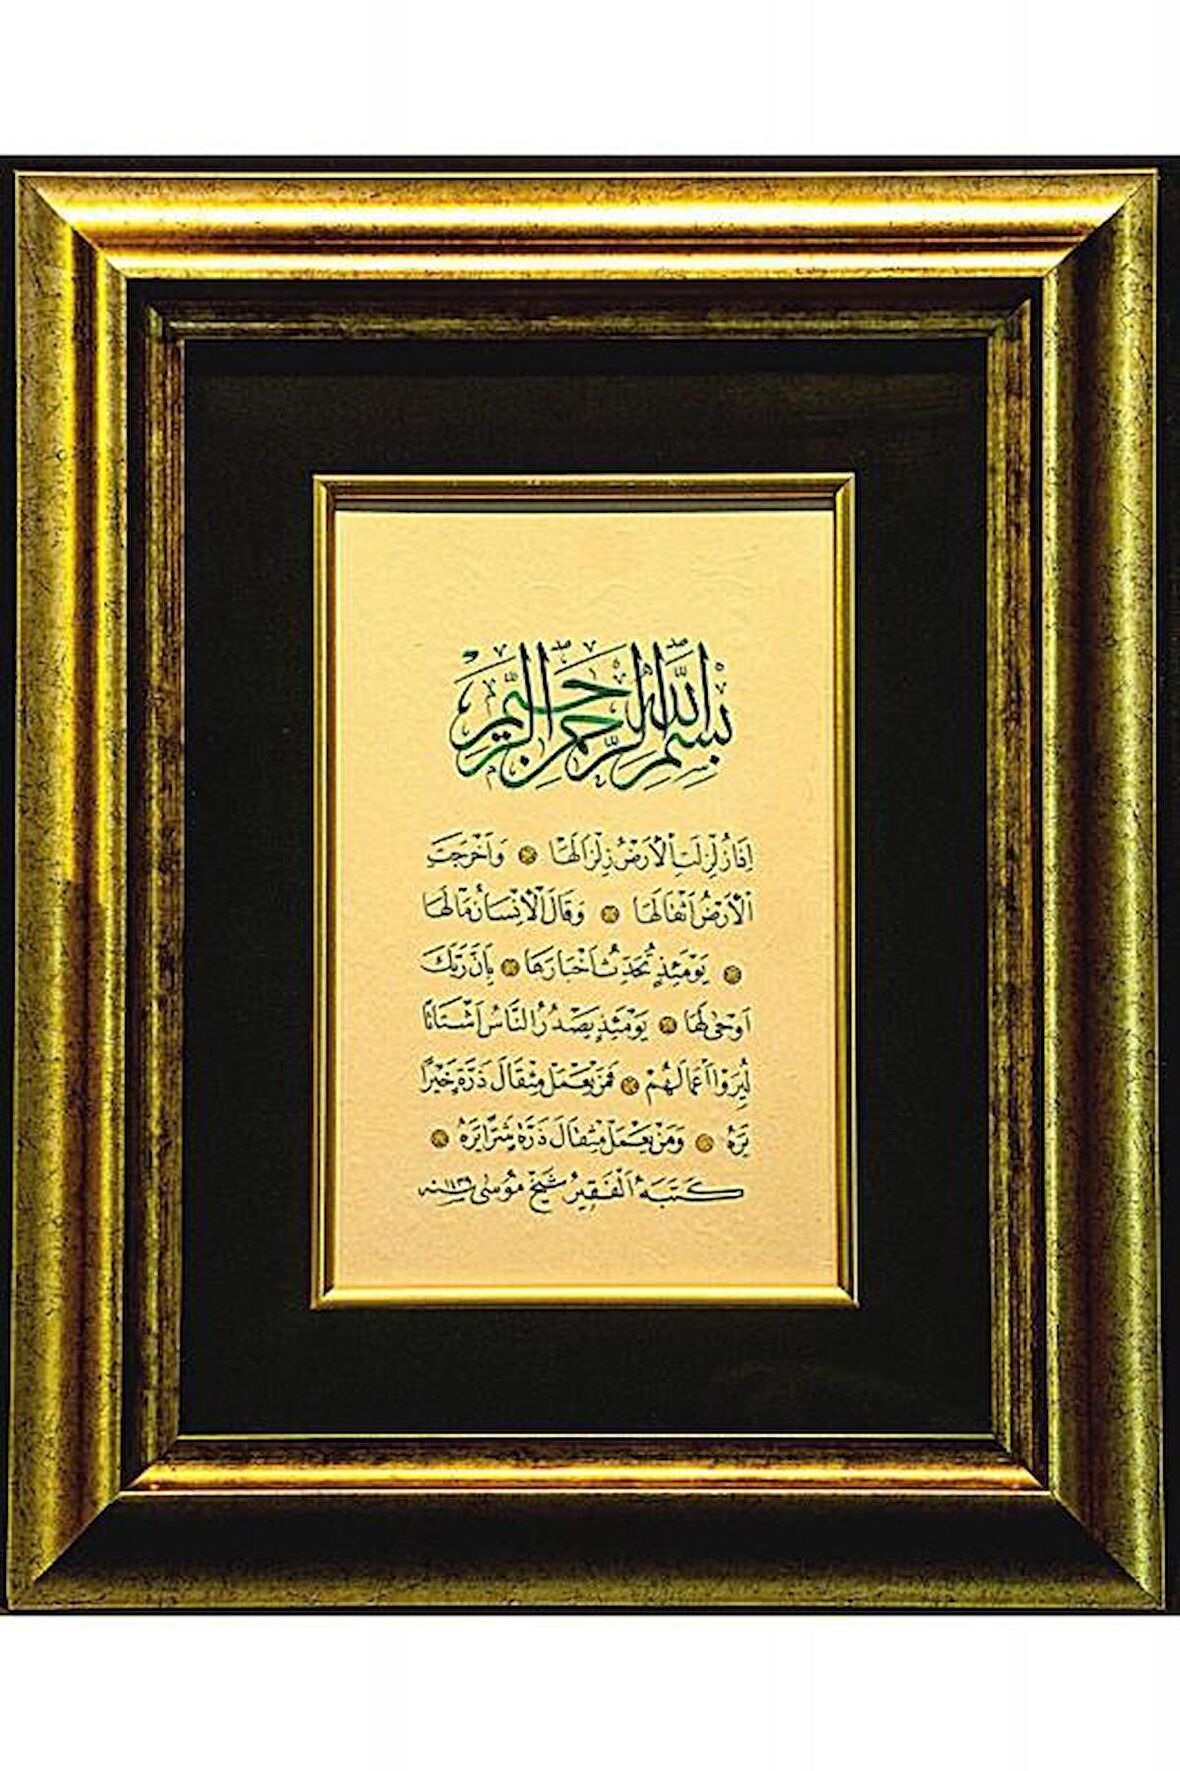 بِسْمِ اللّٰهِ الرَّحْمٰنِ الرَّحِيمِ
اِذَا زُلْزِلَتِ الْاَرْضُ زِلْزَالَهَا ۝ وَاَخْرَجَتِ
الْاَرْضُ اَثْقَالَهَا ۝ وَقَالَ الْاِنْسَانُ مَا لَهَا
۝ يَوْمَئِذٍ تُحَدِّثُ اَخْبَارَهَا ۝ بِاَنَّ رَبَّكَ
اَوْحٰى لَهَا ۝ يَوْمَئِذٍ يَصْدُرُ النَّاسُ اَشْتَاتًا
لِيُرَوْا اَعْمَالَهُمْ ۝ فَمَنْ يَعْمَلْ مِثْقَالَ ذَرَّةٍ خَيْرًا
يَرَهُ ۝ وَمَنْ يَعْمَلْ مِثْقَالَ ذَرَّةٍ شَرًّا يَرَهُ ۝
كَتَبَهُ الْفَقِيرُ شَيْخ مُوسٰى سنه ١٤٣٩